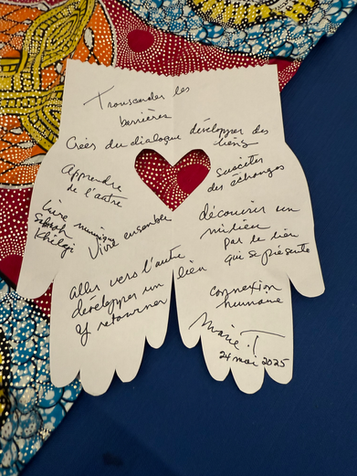 Transcender les
barrières
Créer du dialogue développer des
liens
Apprendre
de l'autre
susciter
des échanges
Livre musique
Vivre ensemble
découvrir un
milieu
par le lien
qui se présente
aller vers l'autre
développer un lien
y retourner
connexion
humaine
Marie. T
24 mai 2025